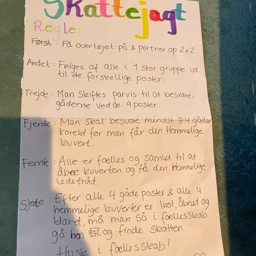 Skattejagt
Regler
Først: Få overtøjet på & partner op 2 & 2
Andet: Følges af alle i 1 stor gruppe ud
til de forskellige poster.
Tredje: Man skiftes parvis til at besvare
gåderne ved de 4 poster
Fjerde: Man skal besvare mindst 3-4 gåder
korrekt før man får den hemmelige
kuvert.
Femte: Alle er fælles og samlet til at
åbne kuverten og få den hemmelige
ledetråd.
Sjete: Efter alle 4 gåde poster & alle 4
hemmelige kuverter er løst, åbnet og
klaret, må man så i fællesskab
gå hen og finde skatten
Husk i fællesskab!